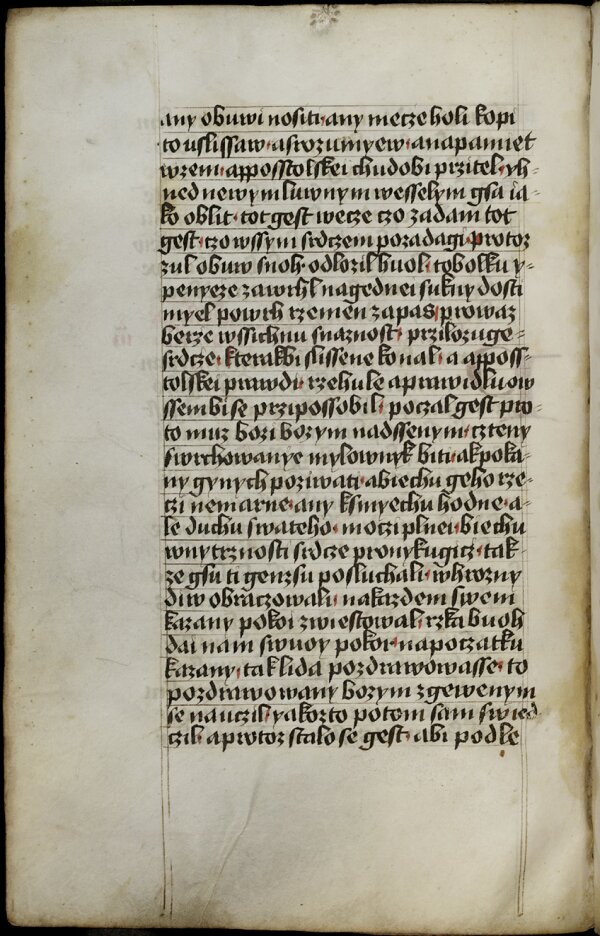 any obuwi nositi any mecze holi kopi
to uslissaw· a srozumyew· a na pamiet
wzem· apposstolskei chudobi przitel· yh-
ned newymluwnym wesselym gsa ia-
ko oblit· tot gest wecze czo zadam tot
gest· czo wssym srdczem pozadagi· protoz
zul obuw s noh· odlozil huol· tobolku y-
penyeze zawrhl na gednei sukny dosti
myel powrh rzemen za pas· prowaz
berze wssichnu snaznost· przilozuge-
srdcze· kterakbi slissene konal· a apposs-
tolskei prawdi· rzehule a prawidluow
ssembi se przipossobil· poczal gest pro-
to muz bozi bozym nadssenym· czteny
swrchowanye mylownyk biti· a kpoka-
ny gynych poziwati· a biechu geho rze-
czi nemarne· any ksmyechu hodne· a-
le duchu swateho· moczi plnei· biechu
wnytrznosti srdcze pronykugicz· tak-
ze gsu ti genzsu posluchali· whrozny
diw obraczowali· na kazdem swem
kazany pokoi zwiestowal· rzka buoh
dai nam swuoy pokoi· na poczatku
kazany· tak lida pozdrawowasse· to
pozdrawowany bozym zgewenym
se nauczil· yakozto potom sam swied
czil· a protoz stalo se gest· abi podle